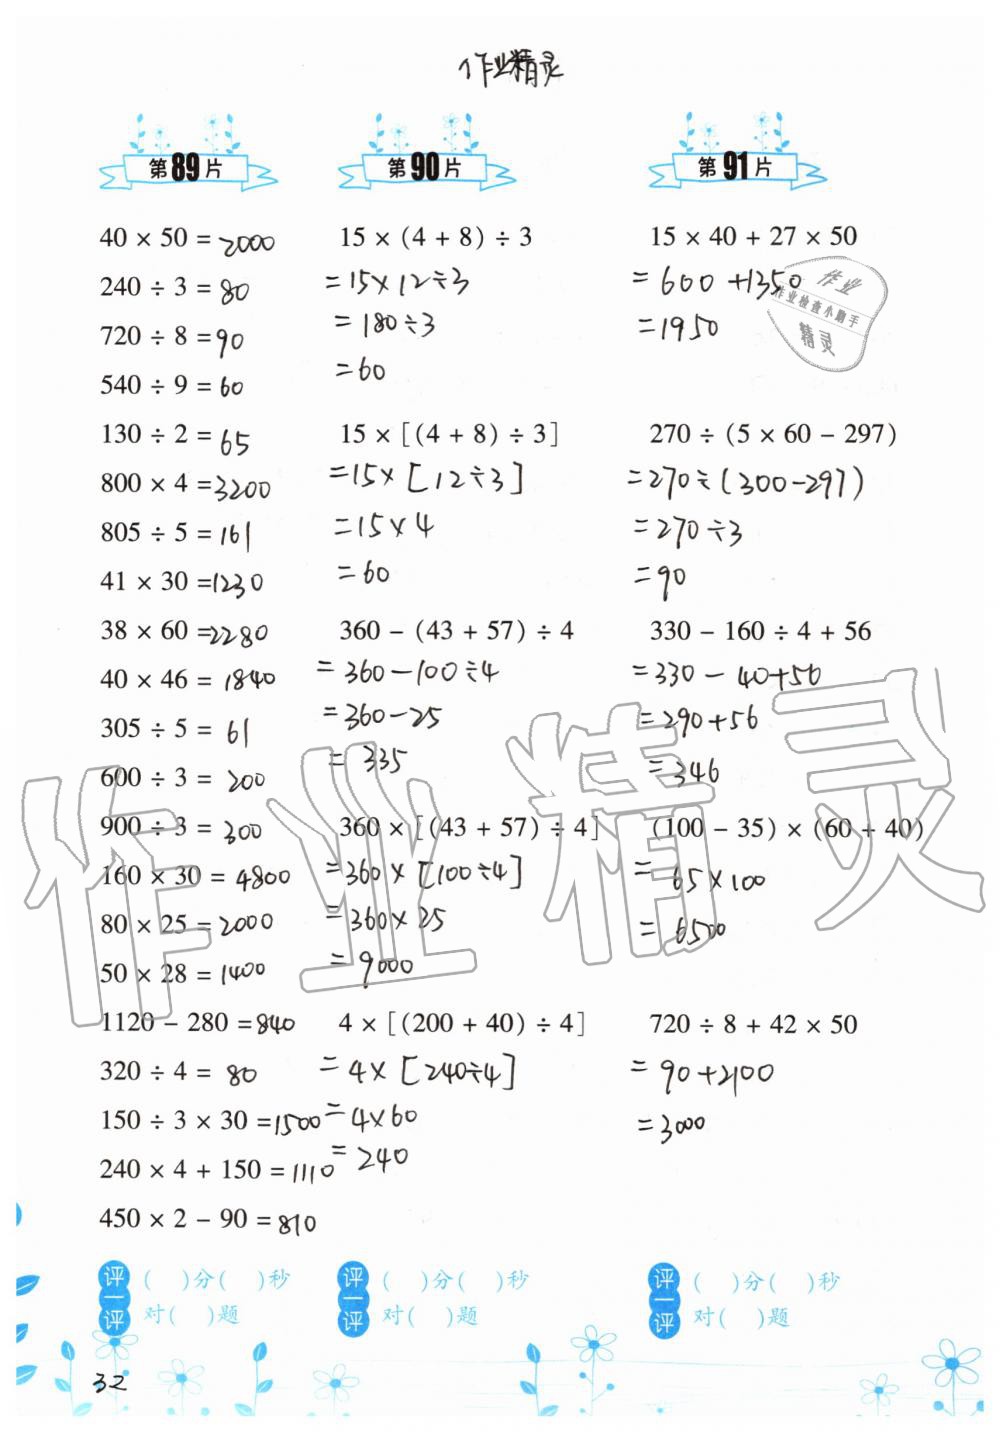 作业精灵
第89片
40 × 50 = 2000
240 ÷ 3 = 80
720 ÷ 8 = 90
540 ÷ 9 = 60
130 ÷ 2 = 65
800 × 4 = 3200
805 ÷ 5 = 161
41 × 30 = 1230
38 × 60 = 2280
40 × 46 = 1840
305 ÷ 5 = 61
600 ÷ 3 = 200
900 ÷ 3 = 300
160 × 30 = 4800
80 × 25 = 2000
50 × 28 = 1400
1120 − 280 = 840
320 ÷ 4 = 80
150 ÷ 3 × 30 = 1500
240 × 4 + 150 = 1110
450 × 2 − 90 = 810
评一评
( )分( )秒
对( )题
第90片
15 × (4 + 8) ÷ 3
= 15 × 12 ÷ 3
= 180 ÷ 3
= 60
15 × [(4 + 8) ÷ 3]
= 15 × [12 ÷ 3]
= 15 × 4
= 60
360 − (43 + 57) ÷ 4
= 360 − 100 ÷ 4
= 360 − 25
= 335
360 × [(43 + 57) ÷ 4]
= 360 × [100 ÷ 4]
= 360 × 25
= 9000
4 × [(200 + 40) ÷ 4]
= 4 × [240 ÷ 4]
= 4 × 60
= 240
评一评
( )分( )秒
对( )题
第91片
15 × 40 + 27 × 50
= 600 + 1350
= 1950
作业
作业检查小助手
精灵
270 ÷ (5 × 60 − 297)
= 270 ÷ (300 − 297)
= 270 ÷ 3
= 90
330 − 160 ÷ 4 + 56
= 330 − 40 + 56
= 290 + 56
= 346
(100 − 35) × (60 + 40)
= 65 × 100
= 6500
720 ÷ 8 + 42 × 50
= 90 + 2100
= 3000
评一评
( )分( )秒
对( )题
作业精灵
32